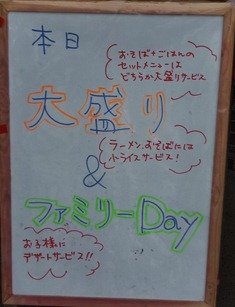 本日
おそば+ごはんの
セットメニューは
どちらか大盛りサービス
大盛り
ラーメン、おそばには
トライスサービス!
&
ファミリーDay
お子様に
デザートサービス!!